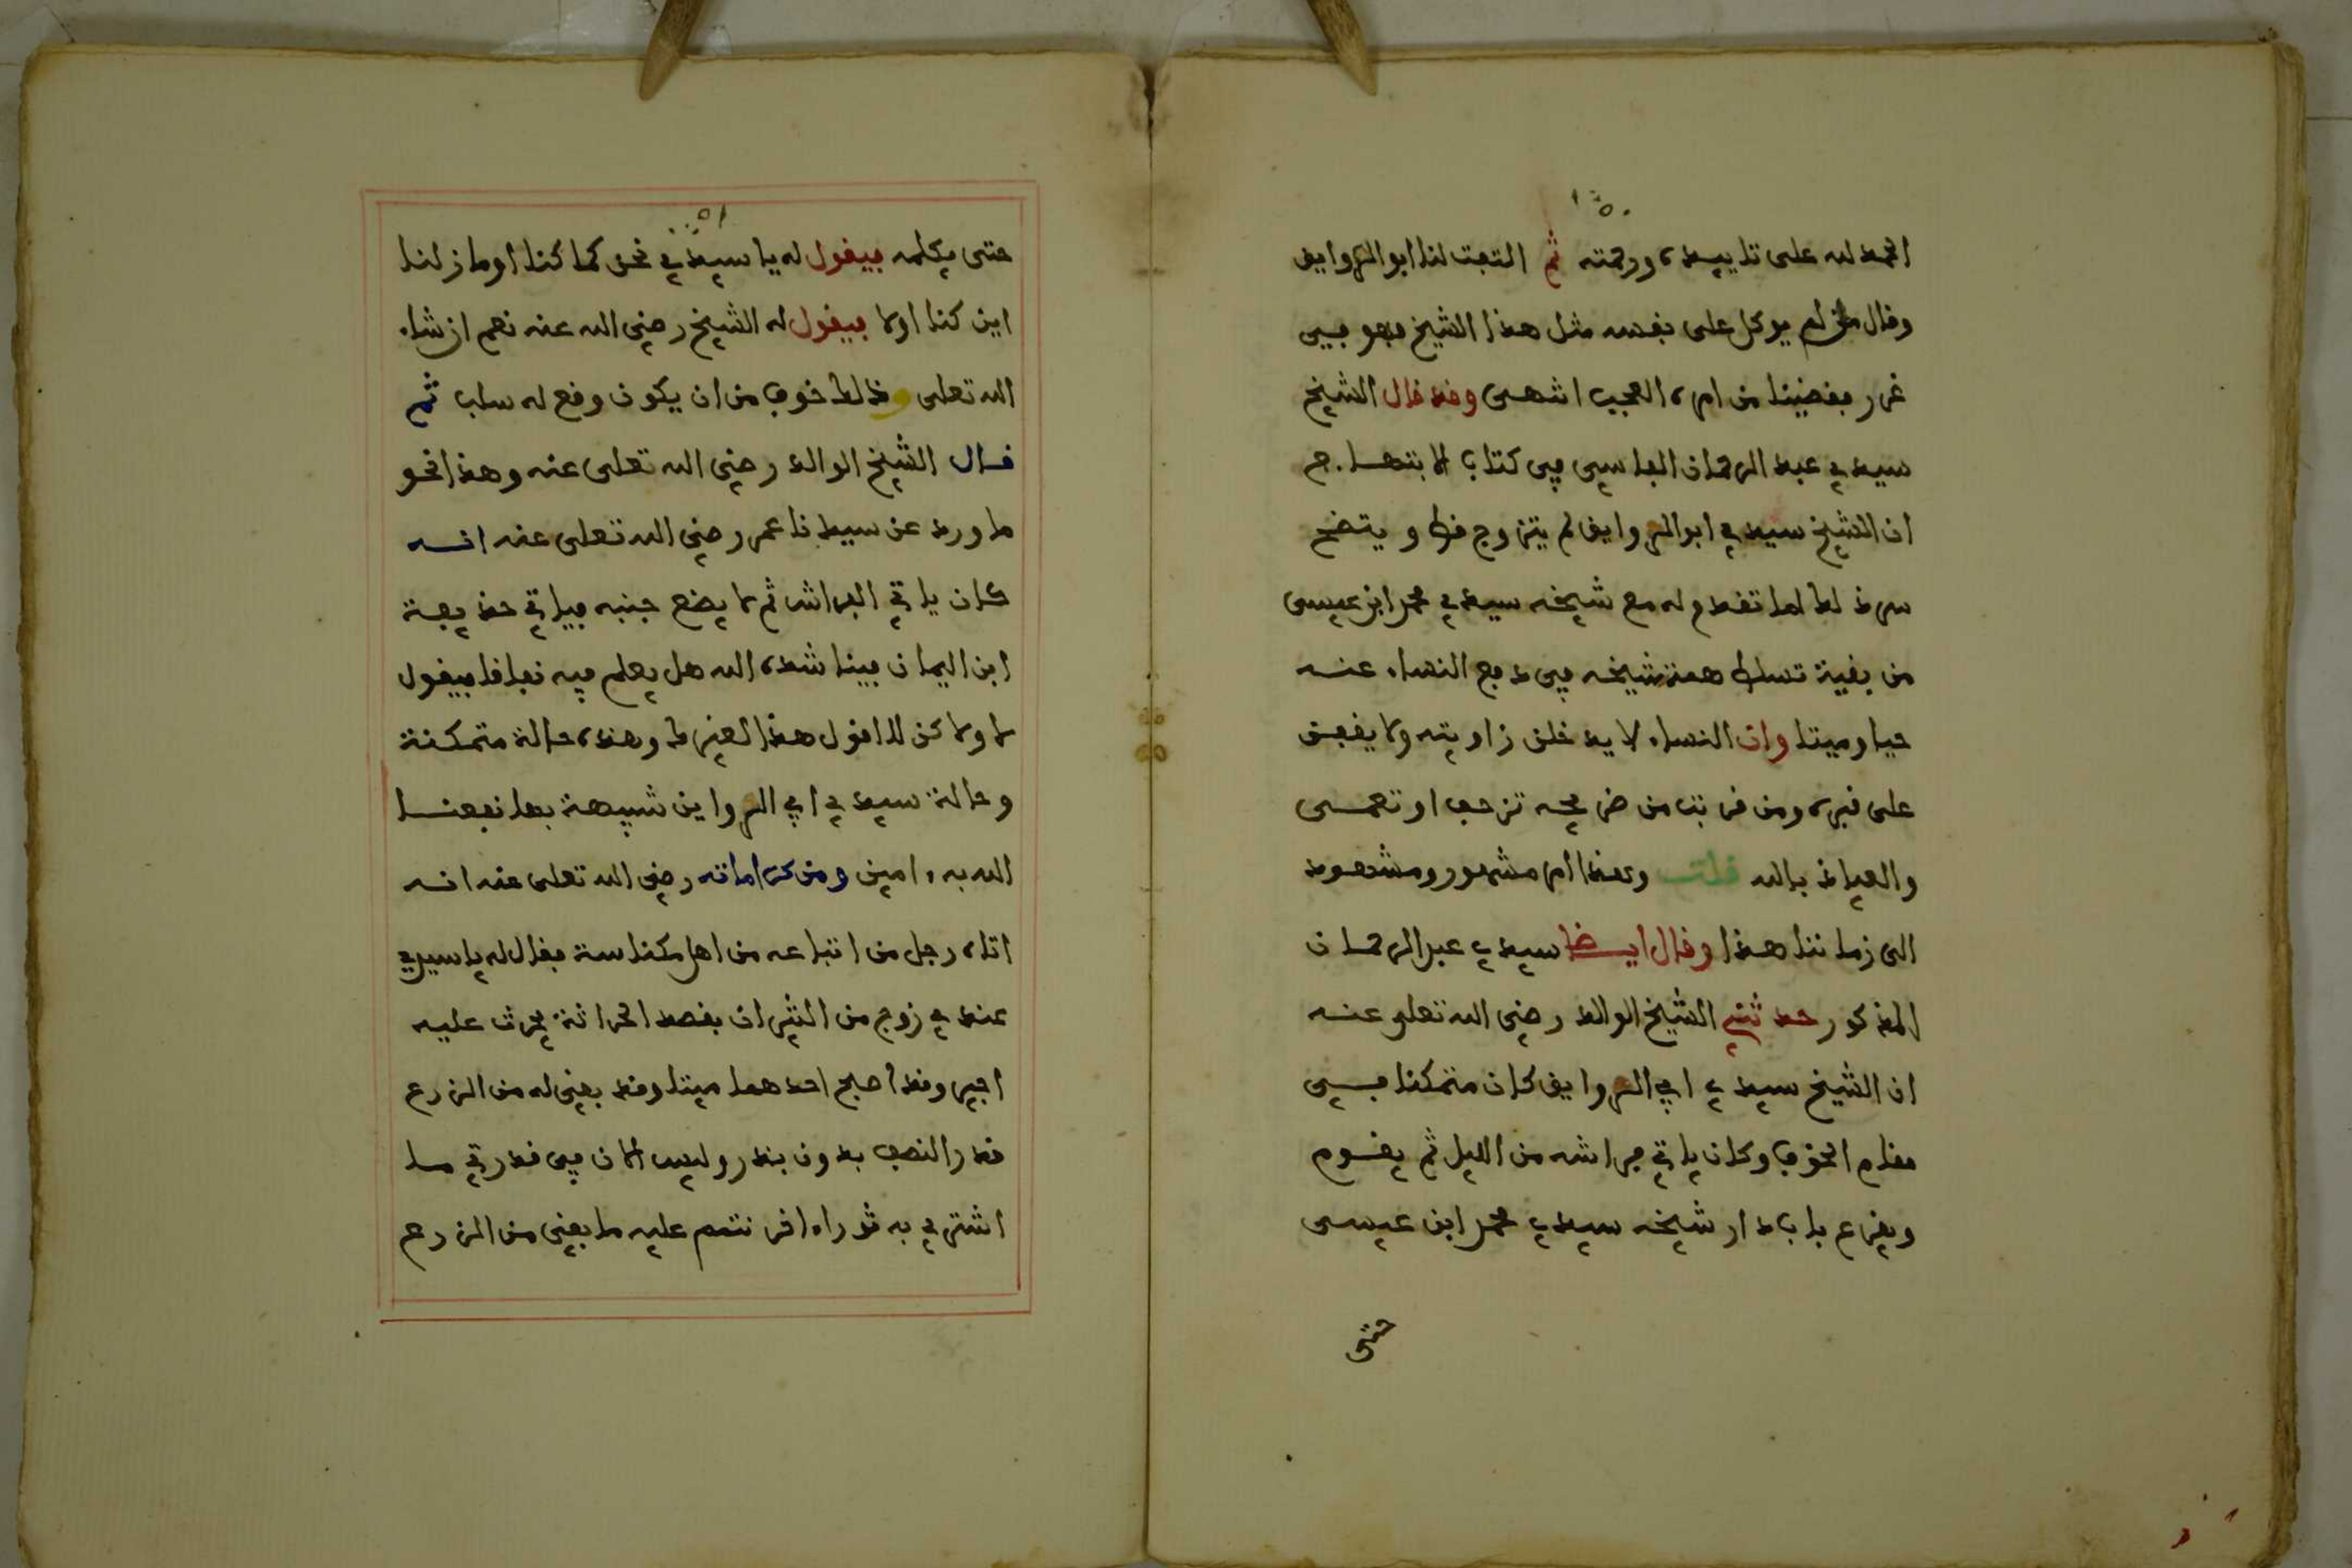 الحمد لله على تاييده ورحمته ثم التفت لنا ابو الرواين
وقال من لم يوكل على نفسه مثل هذا الشيخ فهو في
غرر فقضينا من امره العجب انتهى وقد قال الشيخ
سيدي عبد الرحمان الفاسي في كتاب الابتهاج
ان الشيخ سيدي ابو الرواين لم يتزوج قط ويتضح
سر ذلك لما تقدم له مع شيخه سيدي محمد ابن عيسى
من بقية تسلط همة شيخه في دفع النساء عنه
حيا وميتا وان النساء لا يدخلن زاويته ولا يقفن
على قبره ومن قربت من ضريحه تزحف او تعمى
والعياذ بالله قلت وهذا امر مشهور ومشهود
الى زماننا هذا وقال ايضا سيدي عبد الرحمان
المذكور حدثني الشيخ الوالد رضي الله تعلى عنه
ان الشيخ سيدي ابي الرواين كان متمكنا في
مقام الخوف وكان ياتي فراشه من الليل ثم يقوم
ويقرع باب دار شيخه سيدي محمد ابن عيسى
حتى
حتى يكلمه فيقول له يا سيدي نحن كما كنا او ما زلنا
اين كنا اولا فيقول له الشيخ رضي الله عنه نعم ان شاء
الله تعلى وذلك خوف من ان يكون وقع له سلب ثم
قال الشيخ الوالد رضي الله تعلى عنه وهذا نحو
ما ورد عن سيدنا عمر رضي الله تعلى عنه انه
كان ياتي الفراش ثم لا يضع جنبه فياتي حذيفة
ابن اليمان فينا شده الله هل يعلم فيه نفاقا فيقول
لا ولاكن لا اقول هذا لغيرك وهذه حالة متمكنة
وحالة سيدي ابي الرواين شبيهة بها نفعنا
الله به ءامين ومن كراماته رضي الله تعلى عنه انه
اتاه رجل من اتباعه من اهل مكناسة فقال له يا سيدي
عندي زوج من الثيران بقصد الحراثة يحرث عليه
اجير وقد اصبح احدهما ميتا وقد بقي له من الزرع
قدر النصف بدون بذر وليس الان في قدرتي ما
اشتري به ثورا ءاخر نتمم عليه ما بقي من الزرع